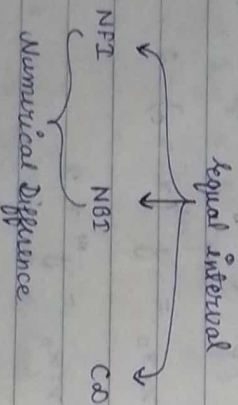 Equal interval
NFI NBI CD
Numerical Difference